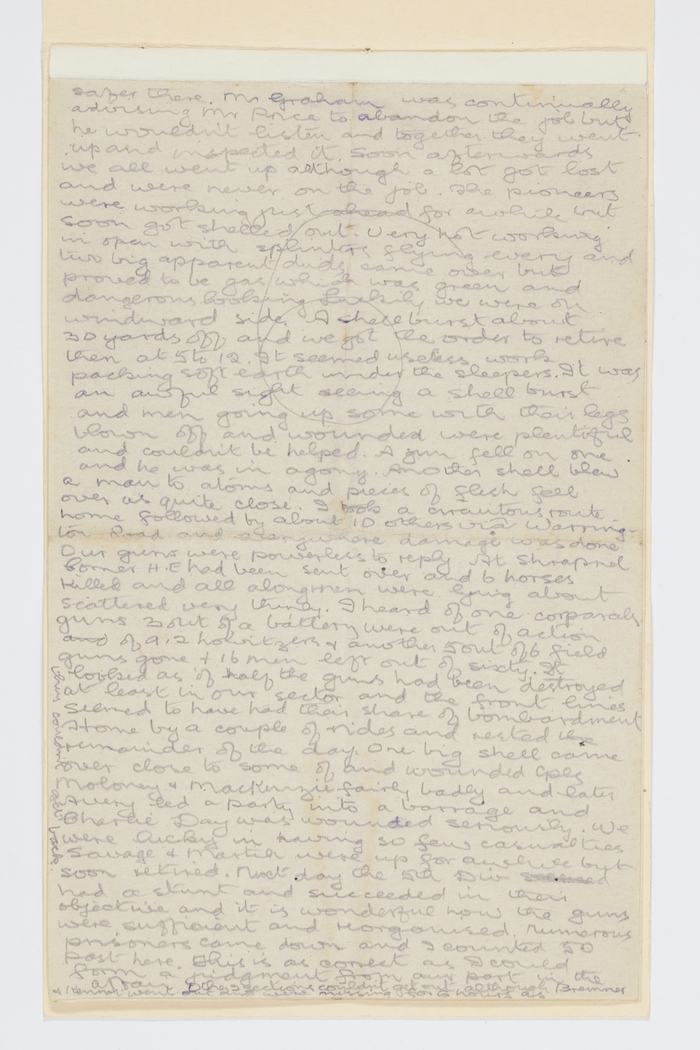 safer there. Mr Graham was continually
advising Mr Price to abandon the job but
he wouldn't listen and together they went
up and inspected it. Soon afterwards
we all went up although a lot got lost
and were never on the job. The pioneers
were working just ahead for awhile but
soon got shelled out. Very hot working
in open with splinters flying every and
two big apparent duds came over but
proved to be gas which was green and
dangerous looking luckily we were on
windward side. A shell burst about
30 yards off and we got the order to retire
then at 5 to 12. It seemed useless work
packing soft earth under the sleepers. It was
an awful sight seeing a shell burst
and men going up some with their legs
blown off and wounded were plentiful
and couldn't be helped. A gun fell on one
and he was in agony. Another shell blew
a man to atoms and pieces of flesh fell
over us quite close. I took a circuitous route
home followed by about 10 others via Warring-
ton Road and everywhere damage was done
Our guns were powerless to reply. At Shrapnel
Corner H.E had been sent over and 6 horses
killed and all along men were lying about
scattered very thinly. I heard of one corporals
guns 3 out of a battery were out of action
and of 9.2 howitzers & another 5 out of 6 field
guns gone & 16 men left out of sixty. It
looked as if half the guns had been destroyed
at least in our sector and the front lines
seemed to have had their share of bombardment
Home by a couple of rides and rested the
remainder of the day. One big shell came
over close to some of and wounded Cpls
Moloney & MacKenzie fairly badly and later
Avery led a party into a barrage and
Charlie Day was wounded seriously. We
were lucky in having so few casualties
Savage & Martin were up for awhile but
soon retired. Next day the 5th Div seemed
had a stunt and succeeded in their
objective and it is wonderful how the guns
were sufficient and reorganised. Numerous
prisoners came down and I counted 50
past here. This is as correct as I could
form a judgment from our part in the
affair. D the sections couldn't get out although Bremner
went out and were missing for 6 hours as
they couldn't get back.